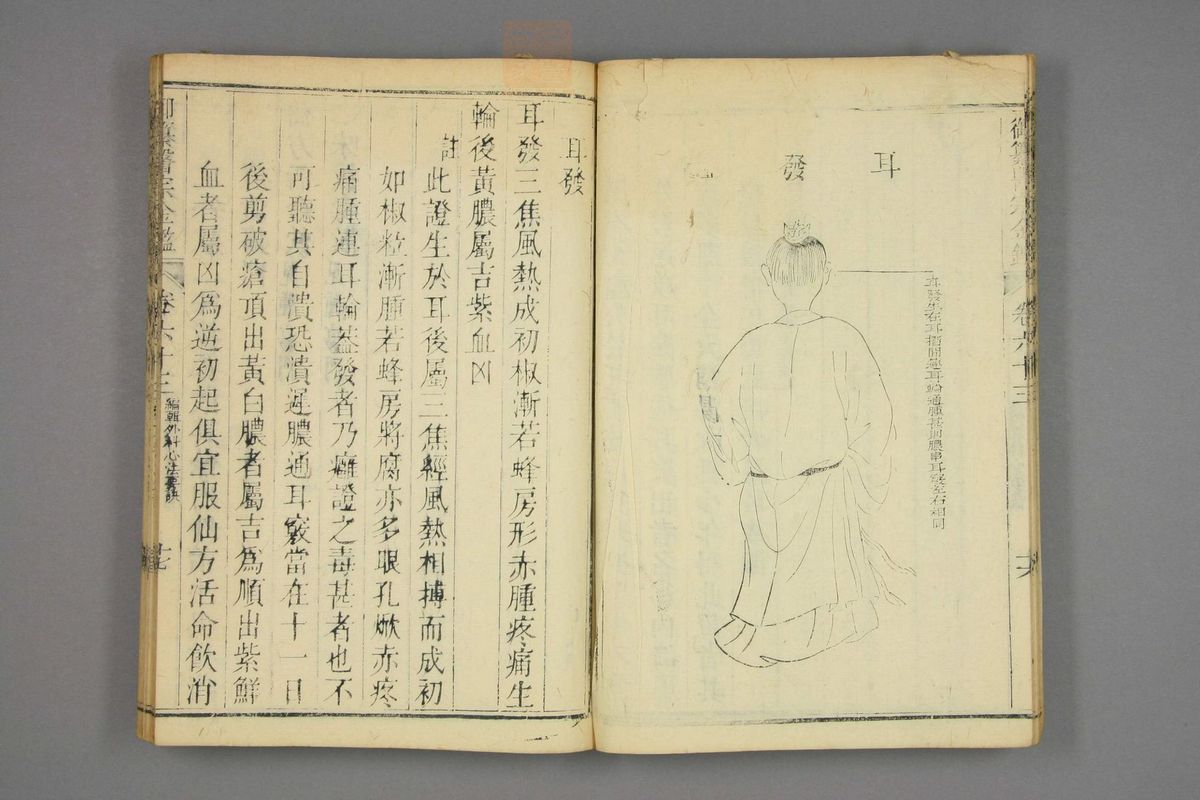 御纂醫宗金鑑 卷六十三 六
耳發圖
耳發生在耳摺間連耳輪通腫甚則膿串耳竅左右相同
耳發
耳發三焦風熱成初椒漸若蜂房形赤腫疼痛生
輪後黃膿屬吉紫血凶
註此證生於耳後屬三焦經風熱相搏而成初
如椒粒漸腫若蜂房將腐亦多眼孔焮赤疼
痛腫連耳輪葢發者乃癰證之毒甚者也不
可聽其自潰恐潰遲膿通耳竅當在十一日
後剪破瘡頂出黃白膿者屬吉爲順出紫鮮
血者屬凶爲逆初起俱宜服仙方活命飲消
御纂醫宗金鑑 卷六十三 編輯外科心法要訣 十七